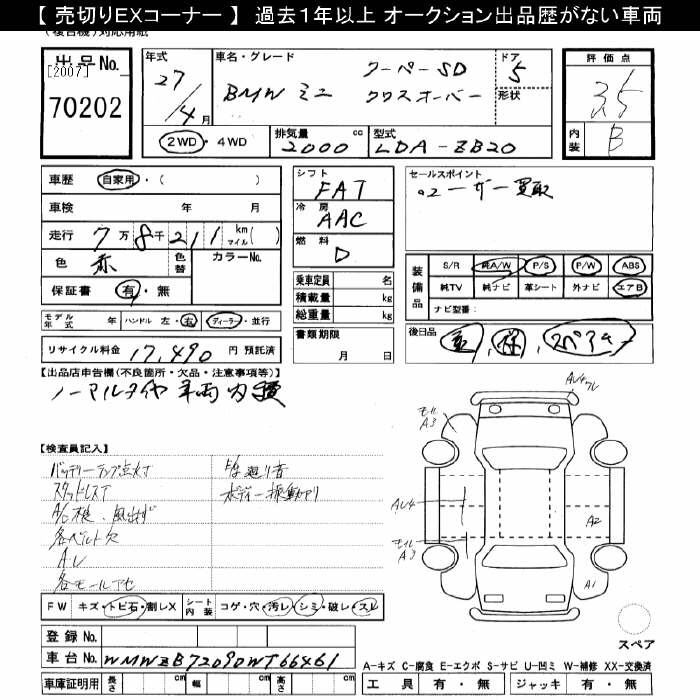 【 売切りEXコーナー 】 過去１年以上 オークション出品歴がない車両
(複合機)対応用紙
出品No.
[2007]
70202
年式 27/4月
車名・グレード BMW ミニ クーパーSD クロスオーバー
ドア 5
形状
評価点 3.5
内装 B
2WD・4WD
排気量 2000 cc
型式 LDA-ZB20
車歴 自家用・( )
車検 年 月
走行 7万8千211 km マイル( )
色 赤 色替 カラーNo.
保証書 有・無
モデル年式 年 ハンドル 左・右 ディーラー・並行
リサイクル料金 17,490 円 預託済
シフト FAT
冷房 AAC
燃料 D
乗車定員 名
積載量 kg
総重量 kg
書類期限 月 日
セールスポイント
・ユーザー買取
装備品
S/R 純A/W P/S P/W ABS
純TV 純ナビ 革シート 外ナビ エアB
ナビ型番:
後日品 記,保,スペアキー
【出品店申告欄(不良箇所・欠品・注意事項等)】
ノーマルタイヤ車両内積
【検査員記入】
バッテリーランプ点灯
スタッドレス
A/C 風出ず
各ベルト欠
AL
各モールアセ
廻り音
ボディー振動アリ
FW キズ・トビ石・割レX シート内装 コゲ・穴・汚レ・シミ・破レ・スレ
登録No.
車台No. WMWZB72090WT66461
車庫証明用 長さ cm 幅 cm 高さ cm
モール A3
AL4
モール A3
A2
A1
スペア
A-キズ C-腐食 E-エクボ S-サビ U-凹ミ W-補修 XX-交換済
工具 有・無 ジャッキ 有・無